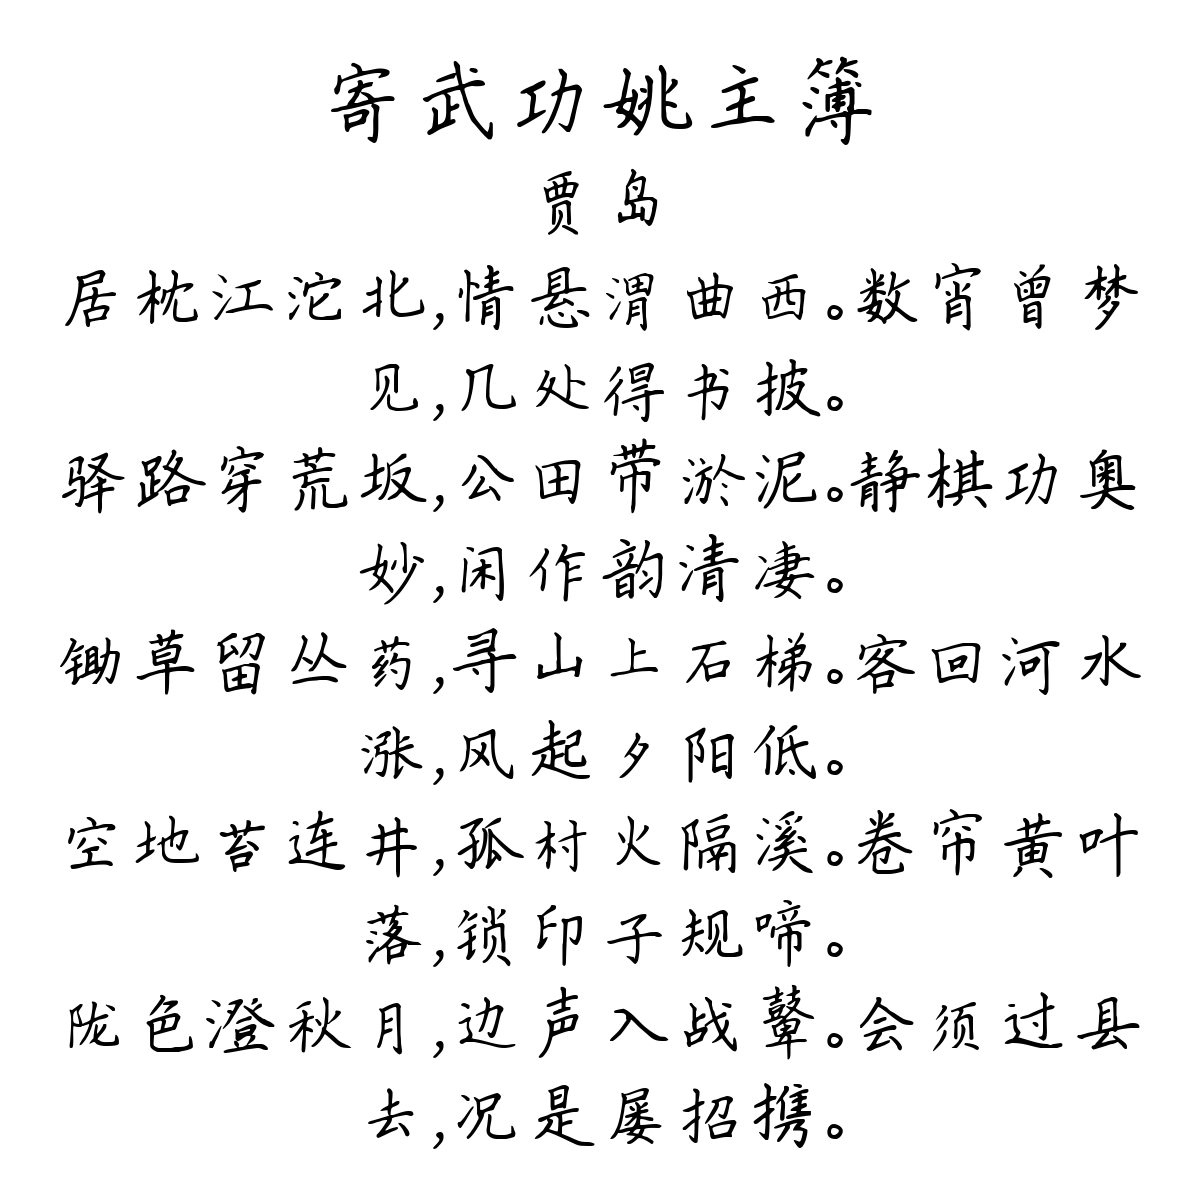 寄武功姚主簿
贾岛
居枕江沱北,情悬渭曲西。数宵曾梦
见,几处得书披。
驿路穿荒坂,公田带淤泥。静棋功奥
妙,闲作韵清凄。
锄草留丛药,寻山上石梯。客回河水
涨,风起夕阳低。
空地苔连井,孤村火隔溪。卷帘黄叶
落,锁印子规啼。
陇色澄秋月,边声入战鼙。会须过县
去,况是屡招携。